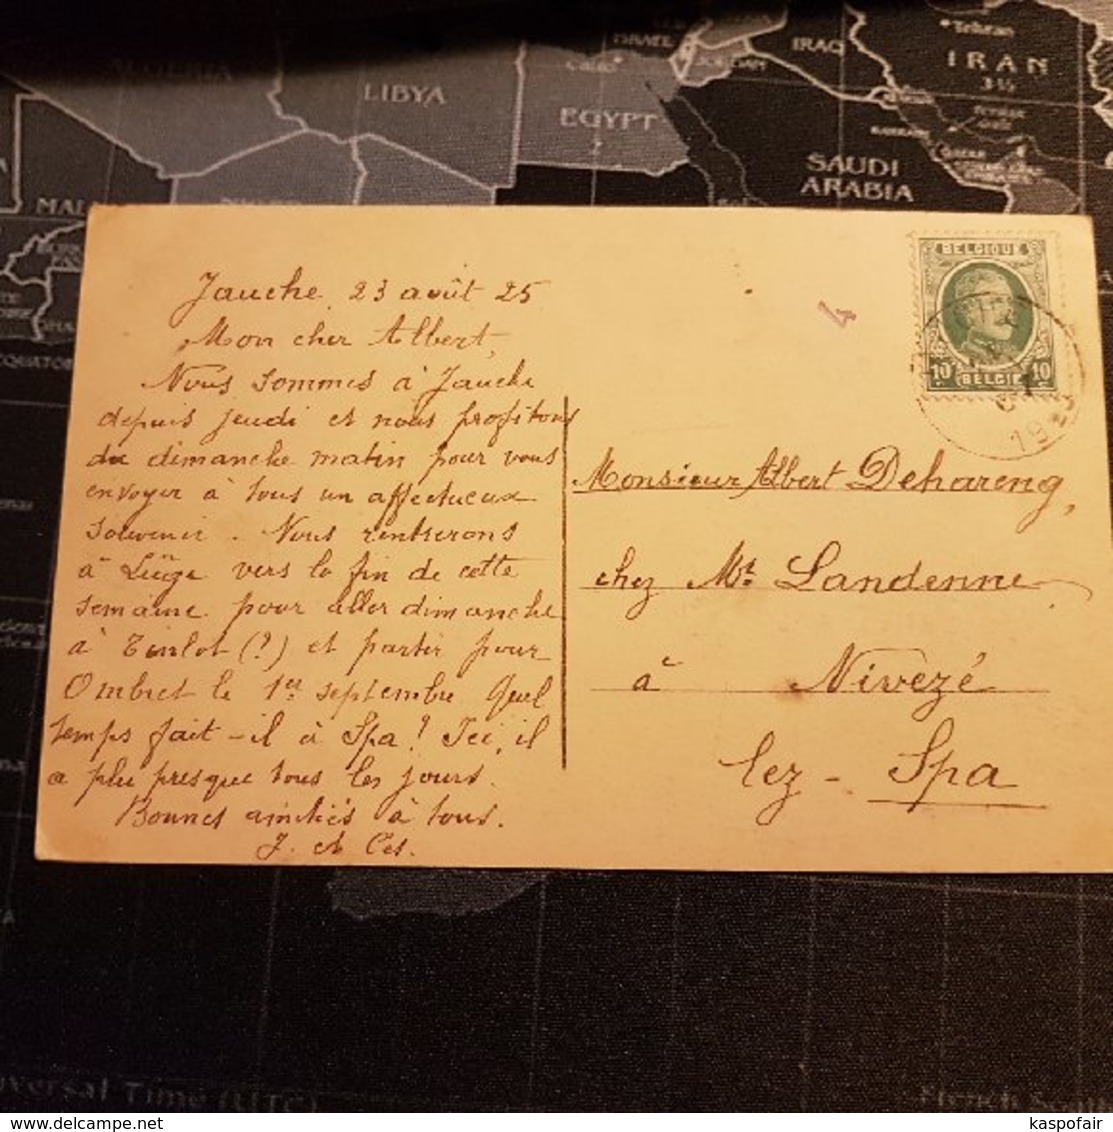 ALGERIA
LIBYA
EGYPT
Cairo
ISRAEL
JORDAN
IRAQ
Tehran
IRAN
3½
BAHRAIN
QATAR
SAUDI
ARABIA
MALI
Jauche, 23 août 25
Mon cher Albert,
Nous sommes à Jauche
depuis jeudi et nous profitons
du dimanche matin pour vous
envoyer à tous un affectueux
souvenir. Nous rentrerons
à Liège vers la fin de cette
semaine pour aller dimanche
à Tinlot (?) et partir pour
Ombret le 1er septembre Quel
temps fait-il à Spa? Ici, il
a plu presque tous les jours.
Bonnes amitiés à tous.
J. et Ces.
4
BELGIQUE
10c 10c
BELGIË
19
Monsieur Albert Dehareng,
chez Mr. Landenne
à Nivezé
lez-Spa
Universal Time (UTC)
French South
kaspofair